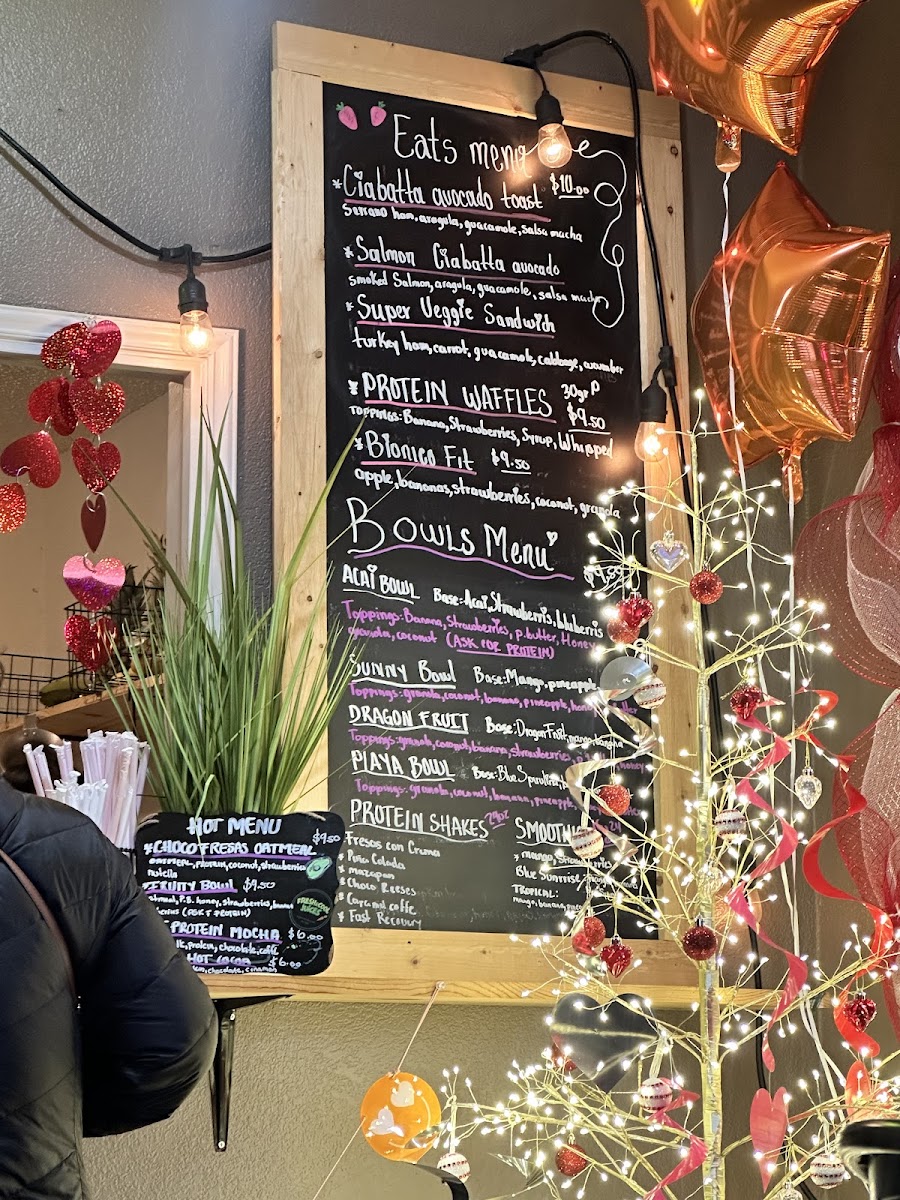 Eats menu
*Ciabatta avocado toast $10.00
Serrano ham, aragula, guacamole, salsa macha
*Salmon Ciabatta avocado
smoked Salmon, aragula, guacamole, salsa macha
*Super Veggie Sandwich
turkey ham, carrot, guacamole, cabbage, cucumber
*PROTEIN WAFFLES 30gr P
$9.50
TOPPINGS: Banana, Strawberries, Syrup, Whipped
*Bionico Fit $9.50
apple, bananas, strawberries, coconut, granola
BOWLS Menu
$9.50
ACAI BOWL Base: Acai, Strawberris, bluberris
Toppings: Banana, Strawberries, p.butter, Honey
granola, coconut (ASK FOR PROTEIN)
SUNNY Bowl Base: Mango, pineapple
Toppings: granola, coconut, banana, pineapple,
DRAGON FRUIT Base: Dragon Fruit, mango, banana
Toppings: granola, coconut, banana, strawberries, honey
PLAYA BOWL Base: Blue Spirulina,
Toppings: granola, coconut, banana, pineapple,
PROTEIN SHAKES 24oz
Fresas con Crema
* Piña Colada
* mazapan
* Choco Reeses
* Caramel caffe
* Fast Recovery
SMOOTH
* mango, Strawberries
Blue Sunrise
TROPICAL:
mango, banana,
HOT MENU
$9.50
*CHOCOFRESAS OATMEAL
oatmeal, coconut, strawberries
nutella
FRUITY BOWL $9.50
P.B. honey, strawberries,
(ASK 4 PROTEIN)
PROTEIN MOCHA $6.00
protein, chocolate, caffe
HOT COCOA $6.00
chocolate, cinnamon